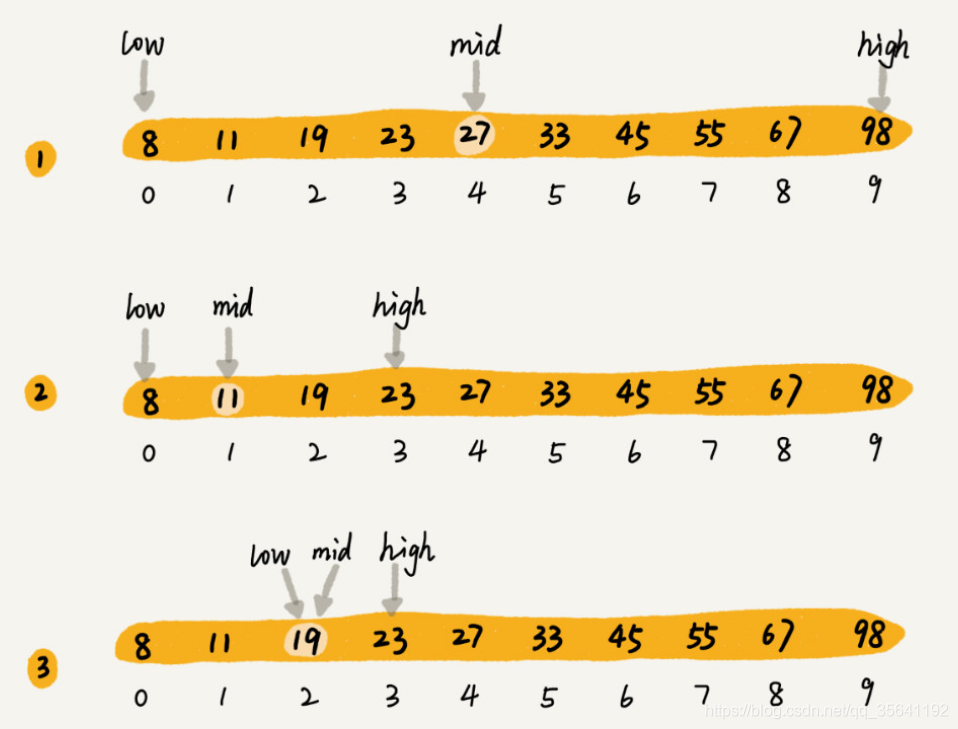 low mid high
1 8 11 19 23 27 33 45 55 67 98
0 1 2 3 4 5 6 7 8 9
low mid high
2 8 11 19 23 27 33 45 55 67 98
0 1 2 3 4 5 6 7 8 9
low mid high
3 8 11 19 23 27 33 45 55 67 98
0 1 2 3 4 5 6 7 8 9
https://blog.csdn.net/qq_35641192